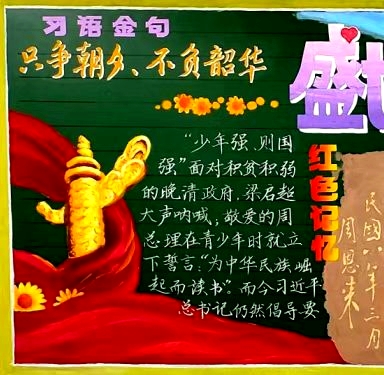 习语金句
只争朝夕、不负韶华
盛世
“少年强,则国
强”面对积贫积弱
的晚清政府,梁启超
大声呐喊,敬爱的周
总理在青少年时就立
下誓言:“为中华民族崛
起而读书”。而今习近平
总书记仍然倡导要
红色记忆
民国八年三月
周恩来